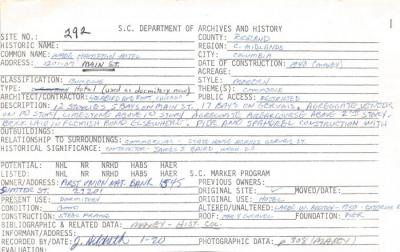 292
S.C. DEPARTMENT OF ARCHIVES AND HISTORY
SITE NO.: COUNTY: RICHLAND
HISTORIC NAME: REGION: C. MIDLANDS
COMMON NAME: WADE HAMPTON HOTEL CITY: COLUMBIA
ADDRESS: 1201-07 MAIN ST. DATE OF CONSTRUCTION: 1940 (MAXEY)
ACREAGE:
CLASSIFICATION: BUILDING STYLE: MODERN
TYPE: Hotel (used as dormitory now) THEME(S): COMMERCE
ARCHITECT/CONTRACTOR: HOLABIRD AND ROOT, CHICAGO PUBLIC ACCESS: RESTRICTED
DESCRIPTION: 12 STORIES, 7 BAYS ON MAIN ST., 17 BAYS ON GERVAIS. AGGREGATE
ON 1ST STORY, LIMESTONE ABOVE 1ST STORY, ABOVE 2ND STORY.
BRICK LAID IN FLEMISH BOND ELSEWHERE. PIER AND SPANDREL CONSTRUCTION WITH
OUTBUILDINGS:
RELATIONSHIP TO SURROUNDINGS: COMMERCIAL - STATE HOUSE ACROSS GERVAIS ST.
HISTORICAL SIGNIFICANCE: CONTRACTOR - JAMES E. BAIRD, WASH. D.C.
POTENTIAL: NHL NR NRHD HABS HAER
LISTED: NHL NR NRHD HABS HAER S.C. MARKER PROGRAM
OWNER/ADDRESS: FIRST UNION NAT. BANK 1545 PREVIOUS OWNERS:
29201 ORIGINAL SITE: MOVED/DATE:
PRESENT USE: DORMITORY ORIGINAL USE: HOTEL
CONDITION: GOOD UNALTERED/ALTERED/DATE:
CONSTRUCTION: STEEL FRAME ROOF: GRAVEL FOUNDATION: PIER
BIBLIOGRAPHIC & RELATED DATA: MAXEY - HIST. COL.
INFORMANT:
RECORDED BY/DATE: 1-20 PHOTOGRAPHIC DATA: 308 (MAXEY)
EVALUATION: